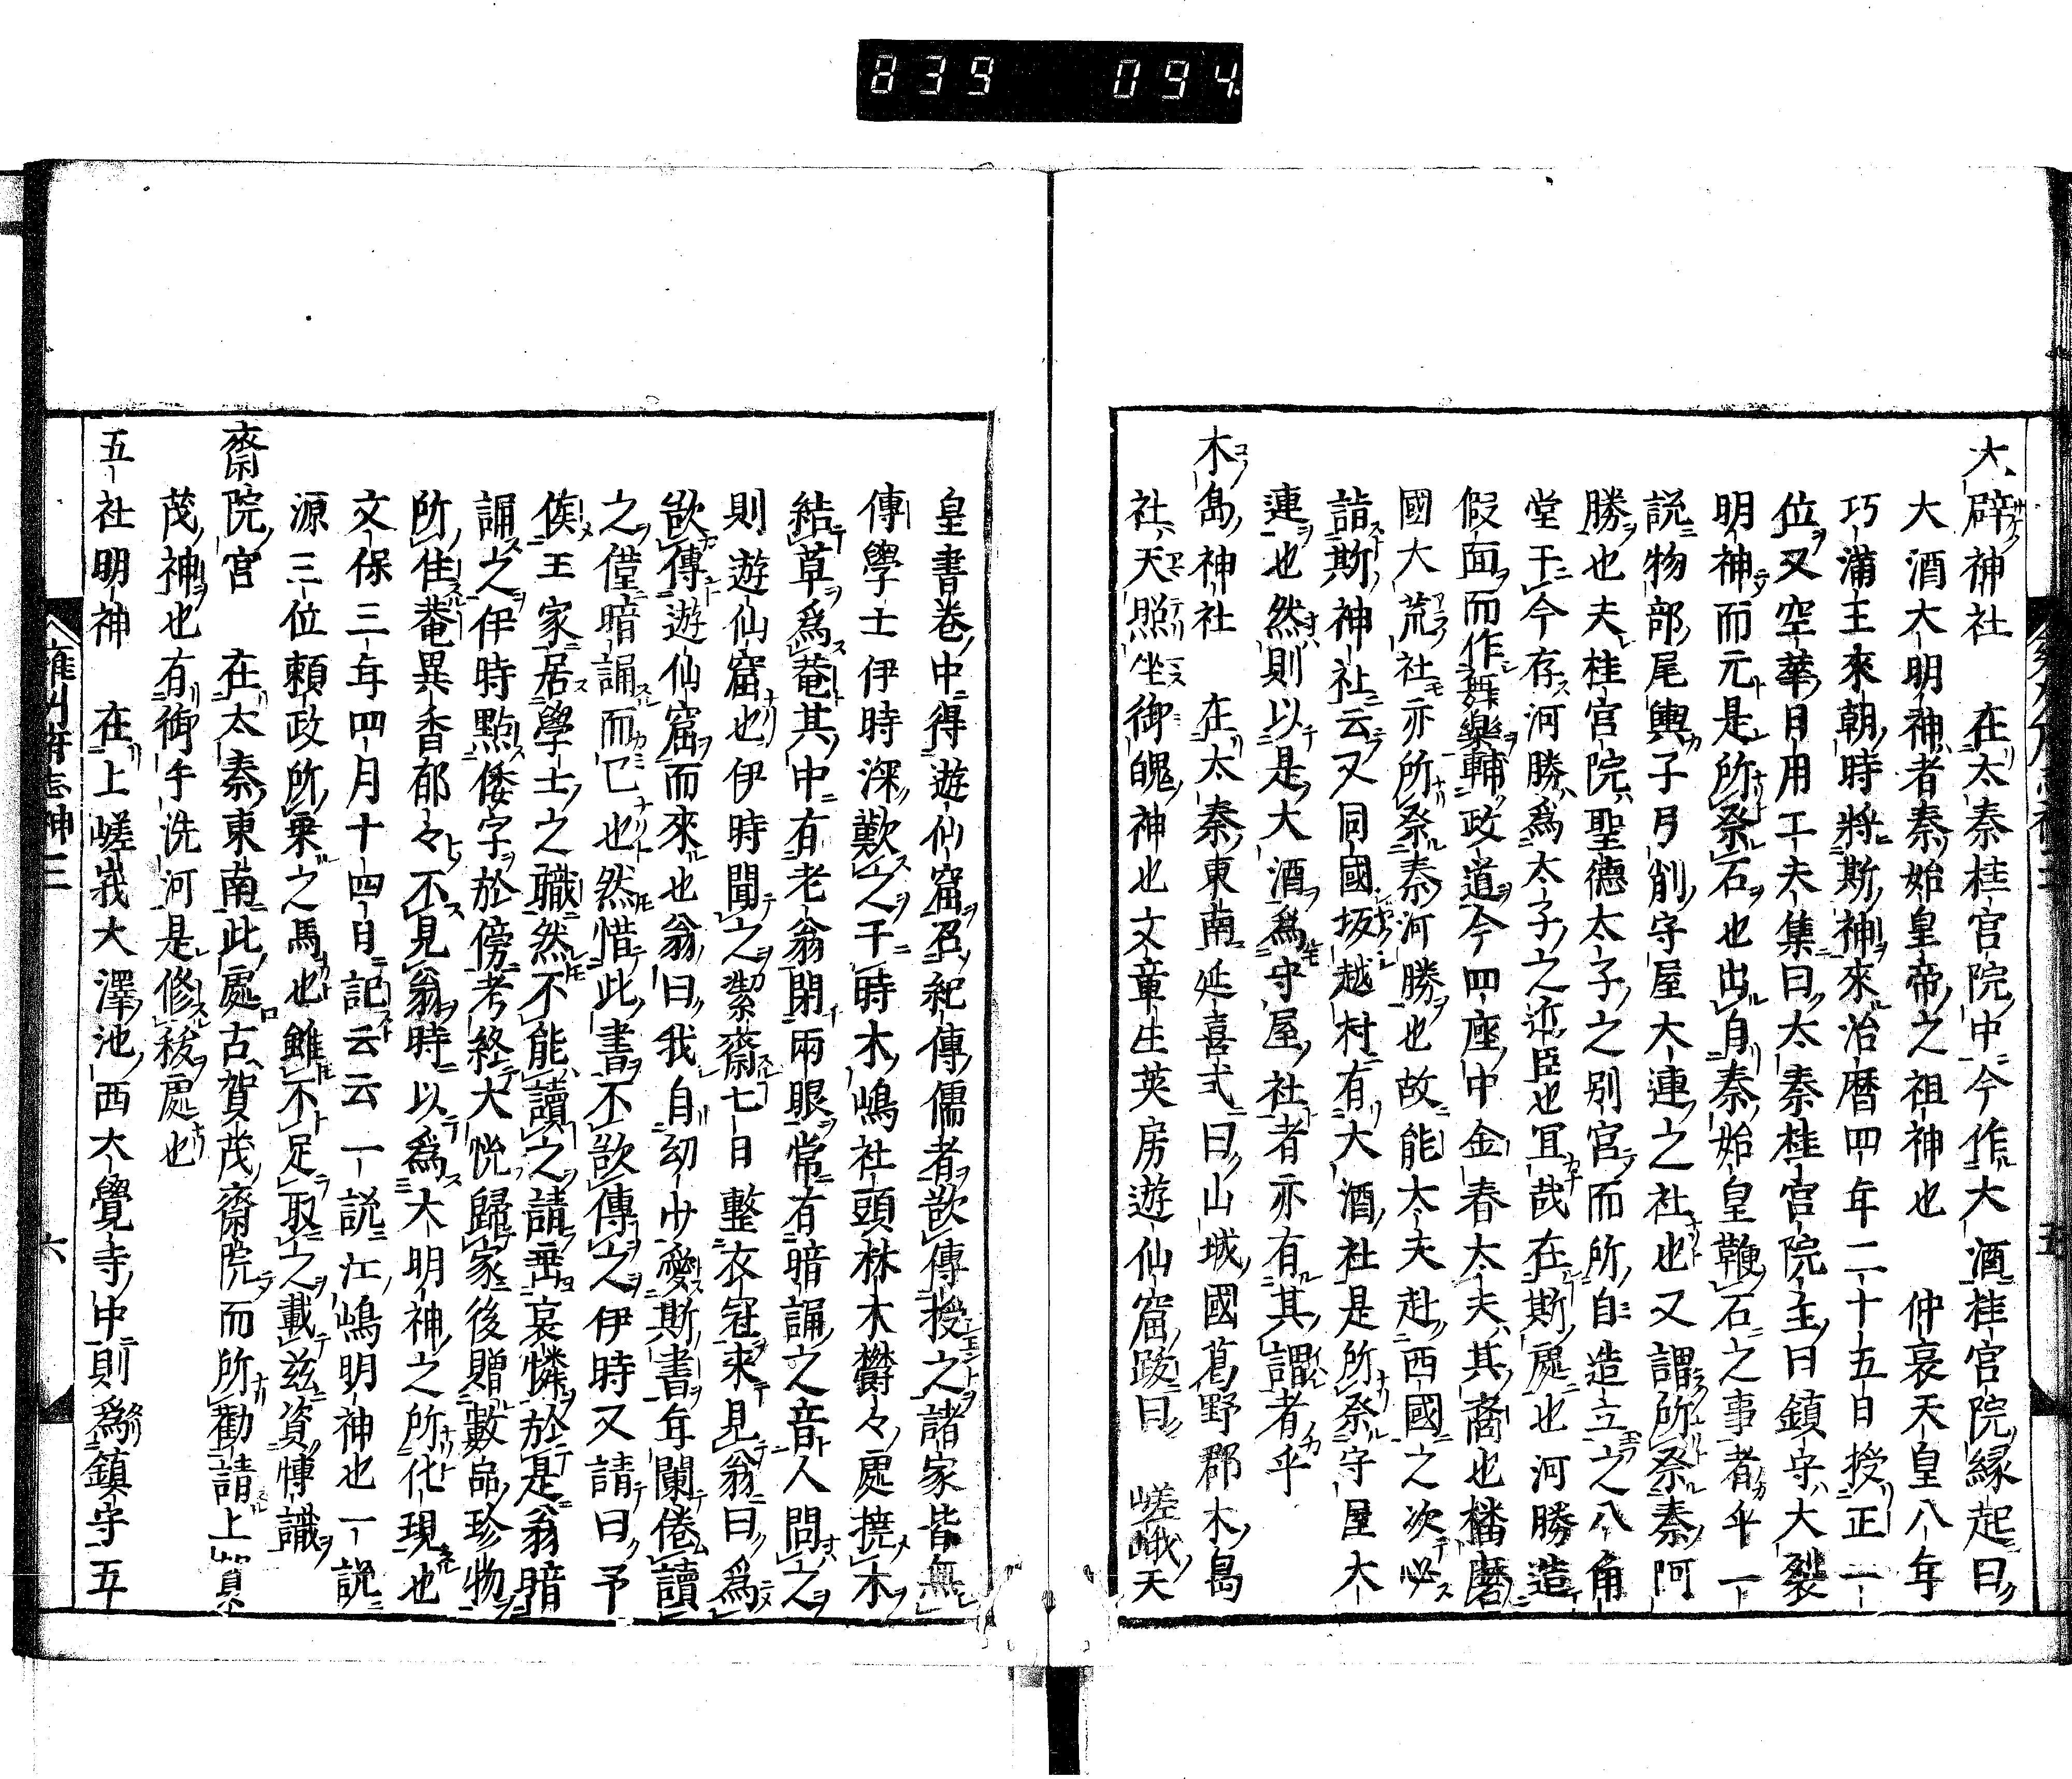 839 094.
大辟神社　在太秦桂宮院中今作大酒桂宮院縁起曰
大酒大明神者秦始皇帝之祖神也　仲哀天皇八年
巧滿王來朝時將斯神來治暦四年二十五日授正一
位又空華日用工夫集曰太秦桂宮院主曰鎮守大裂
明神而元是所祭石也出自秦始皇鞭石之事者乎一
説物部尾輿子弓削守屋大連之社也又謂所祭秦阿
勝也夫桂宮院聖德太子之別宮而所自造立之八角
堂于今存河勝爲太子之近臣也冝哉在斯處也河勝造
假面而作舞樂輔政道今四座中金春太夫其裔也播磨
國大荒社亦所祭秦河勝也故能太夫赴西國之次必
詣斯神社云又同國坂越村有大酒社是所祭守屋大
連也然則以是大酒爲守屋社者亦有其謂者乎
木島神社　在太秦東南延喜式曰山城國葛野郡木島
社天照坐御魄神也文章生英房遊仙窟跋曰　嵯峨天
皇書卷中得遊仙窟召紀傳儒者欲傳授之諸家皆無
傳學士伊時深歎之于時木嶋社頭林木欝々處撓木
結草爲菴其中有老翁閑兩眼常有暗誦之音人問之
則遊仙窟也伊時聞之潔齋七日整衣冠來見翁曰爲
欲傳遊仙窟而來也翁曰我自幼少愛斯書年闌倦讀
之僅暗誦而已也然惜此書不欲傳之伊時又請曰予
侯王家居學士之職然不能讀之請垂哀憐於是翁暗
誦之伊時點倭字於傍考終大悦歸家後贈數品珍物
所住菴異香郁々不見翁時以爲大明神之所化現也
文保三年四月十四日記云云一説江嶋明神也一説
源三位頼政所乗之馬也雖不足取之載茲資博識
齋院宮　在太秦東南此處古賀茂齋院而所勸請上賀
茂神也有御手洗河是修祓處也
五社明神　在上嵯峨大澤池西大覺寺中則爲鎮守五
雍州府志神三
六